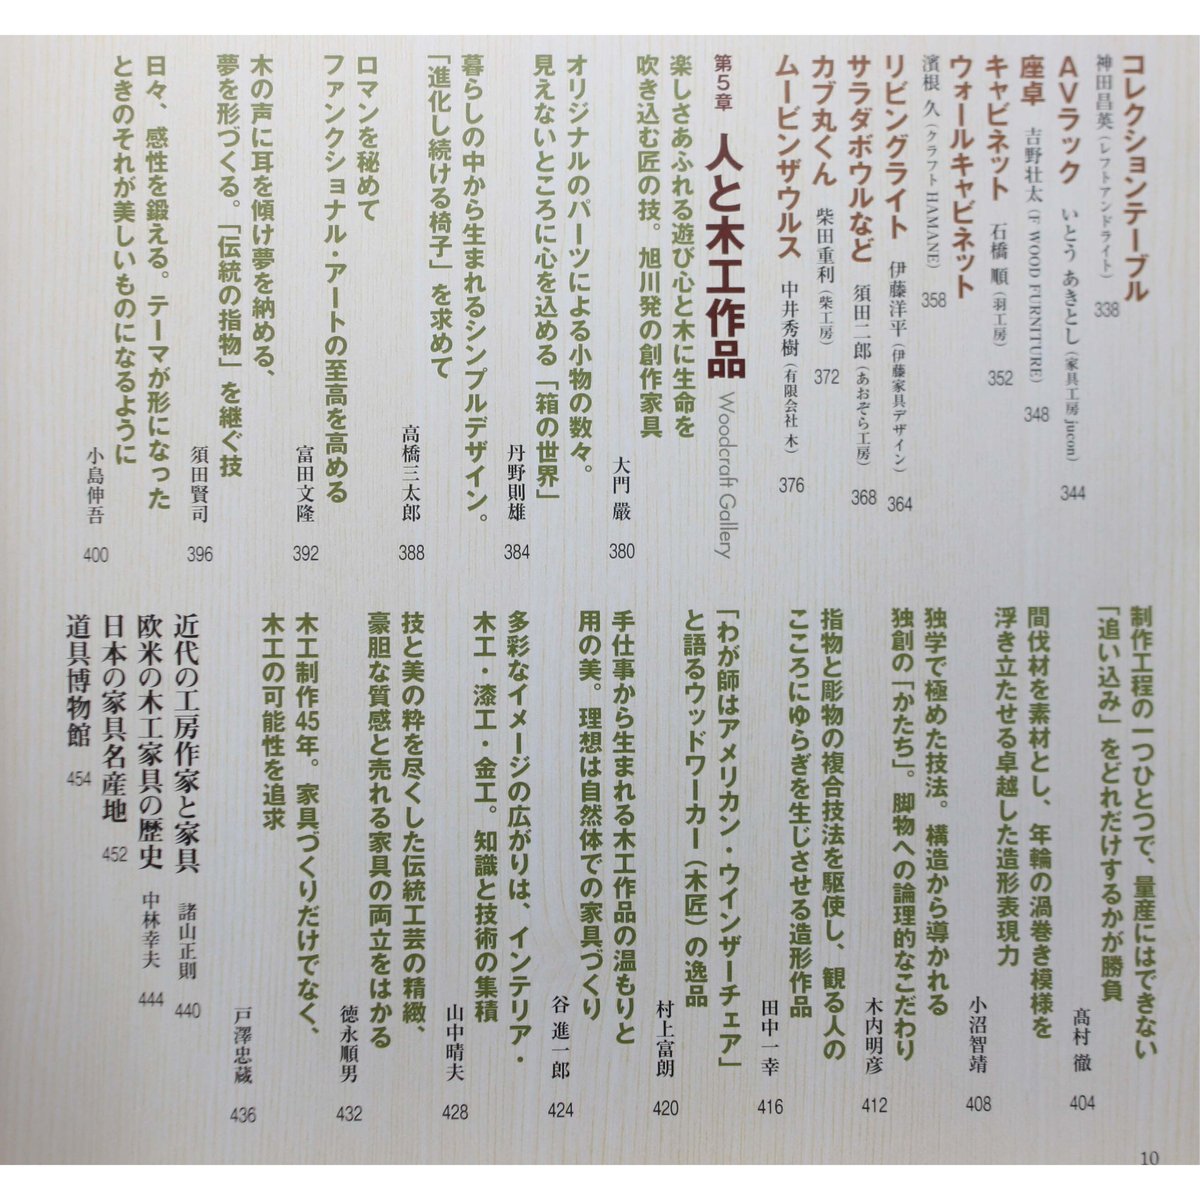 コレクションテーブル
神田昌英（レフトアンドライト） 338
AVラック いとう あきとし（家具工房 jucon） 344
座卓 吉野壮太（F. WOOD FURNITURE） 348
キャビネット 石橋 順（羽工房） 352
ウォールキャビネット
濱根 久（クラフト HAMANE） 358
リビングライト 伊藤洋平（伊藤家具デザイン） 364
サラダボウルなど 須田二郎（あおぞら工房） 368
カブ丸くん 柴田重利（柴工房） 372
ムービンザウルス 中井秀樹（有限会社 木） 376
第5章 人と木工作品 Woodcraft Gallery
楽しさあふれる遊び心と木に生命を
吹き込む匠の技。旭川発の創作家具
大門 嚴 380
オリジナルのパーツによる小物の数々。
見えないところに心を込める「箱の世界」
丹野則雄 384
暮らしの中から生まれるシンプルデザイン。
「進化し続ける椅子」を求めて
高橋三太郎 388
ロマンを秘めて
ファンクショナル・アートの至高を高める
富田文隆 392
木の声に耳を傾け夢を納める、
夢を形づくる。「伝統の指物」を継ぐ技
須田賢司 396
日々、感性を鍛える。テーマが形になった
ときのそれが美しいものになるように
小島伸吾 400
制作工程の一つひとつで、量産にはできない
「追い込み」をどれだけするかが勝負
髙村 徹 404
間伐材を素材とし、年輪の渦巻き模様を
浮き立たせる卓越した造形表現力
小沼智靖 408
独学で極めた技法。構造から導かれる
独創の「かたち」。脚物への論理的なこだわり
木内明彦 412
指物と彫物の複合技法を駆使し、観る人の
こころにゆらぎを生じさせる造形作品
田中一幸 416
「わが師はアメリカン・ウインザーチェア」
と語るウッドワーカー（木匠）の逸品
村上富朗 420
手仕事から生まれる木工作品の温もりと
用の美。理想は自然体での家具づくり
谷 進一郎 424
多彩なイメージの広がりは、インテリア・
木工・漆工・金工。知識と技術の集積
山中晴夫 428
技と美の粋を尽くした伝統工芸の精緻、
豪胆な質感と売れる家具の両立をはかる
徳永順男 432
木工制作45年。家具づくりだけでなく、
木工の可能性を追求
戸澤忠蔵 436
近代の工房作家と家具 諸山正則 440
欧米の木工家具の歴史 中林幸夫 444
日本の家具名産地 452
道具博物館 454
10